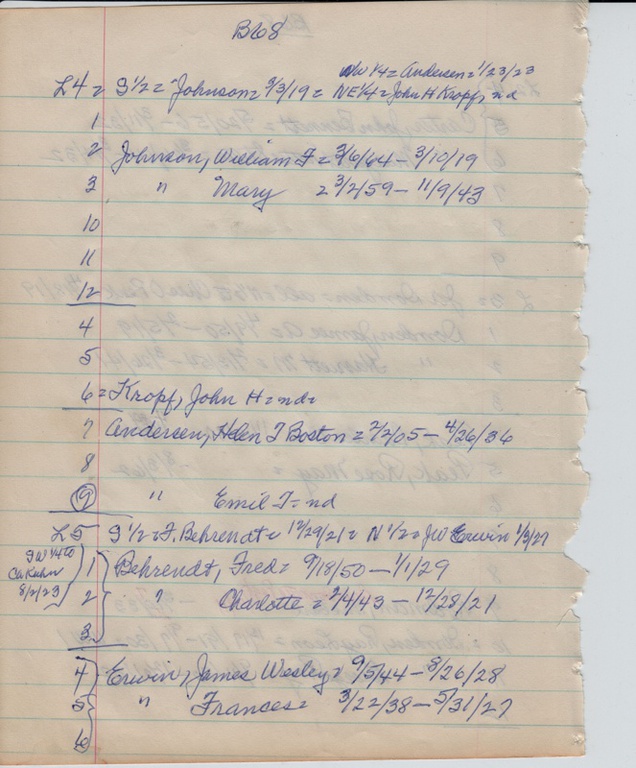 B68
NW 1/4 = Andersen = 1/23/23
L4 = S 1/2 = Johnson = 3/3/19 = NE 1/4 = John H Kropf, nd
1
2 Johnson, William F = 3/6/64 - 3/10/19
3 " Mary = 3/2/59 - 11/9/43
10
11
12
4
5
6 = Kropf, John H = nd =
7 Andersen, Helen T Boston = 2/2/05 - 4/26/36
8
9 " Emil F = nd
L5 S 1/2 = F. Behrendt = 12/29/21 = N 1/2 = JW Erwin 1/3/27
SW 1/4 to
Ca Kuhn
8/2/23
1 Behrendt, Fred = 9/18/50 - 1/1/29
2 " Charlotte = 2/4/43 - 12/28/21
3
4 Erwin, James Wesley = 9/5/44 - 8/26/28
5 " Frances = 3/22/38 - 5/31/27
6